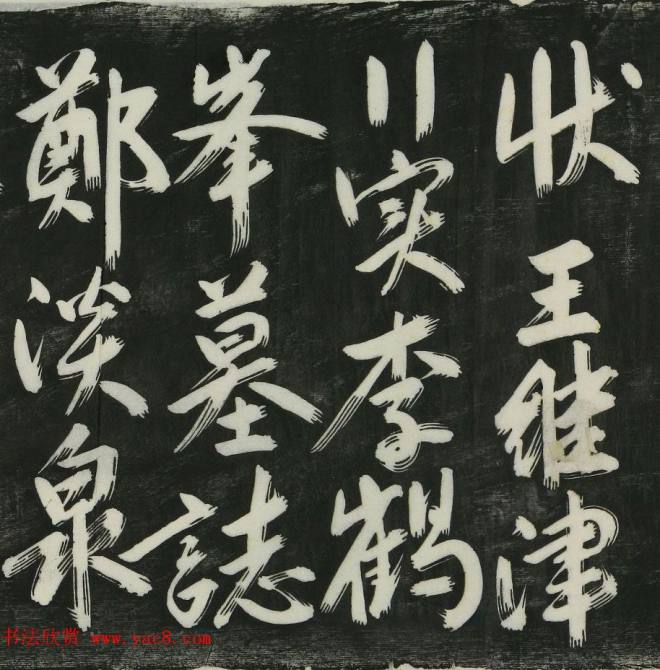 状王继津
实李鹤
峯墓誌
鄭淡泉
书法欣赏 www.yac8.com